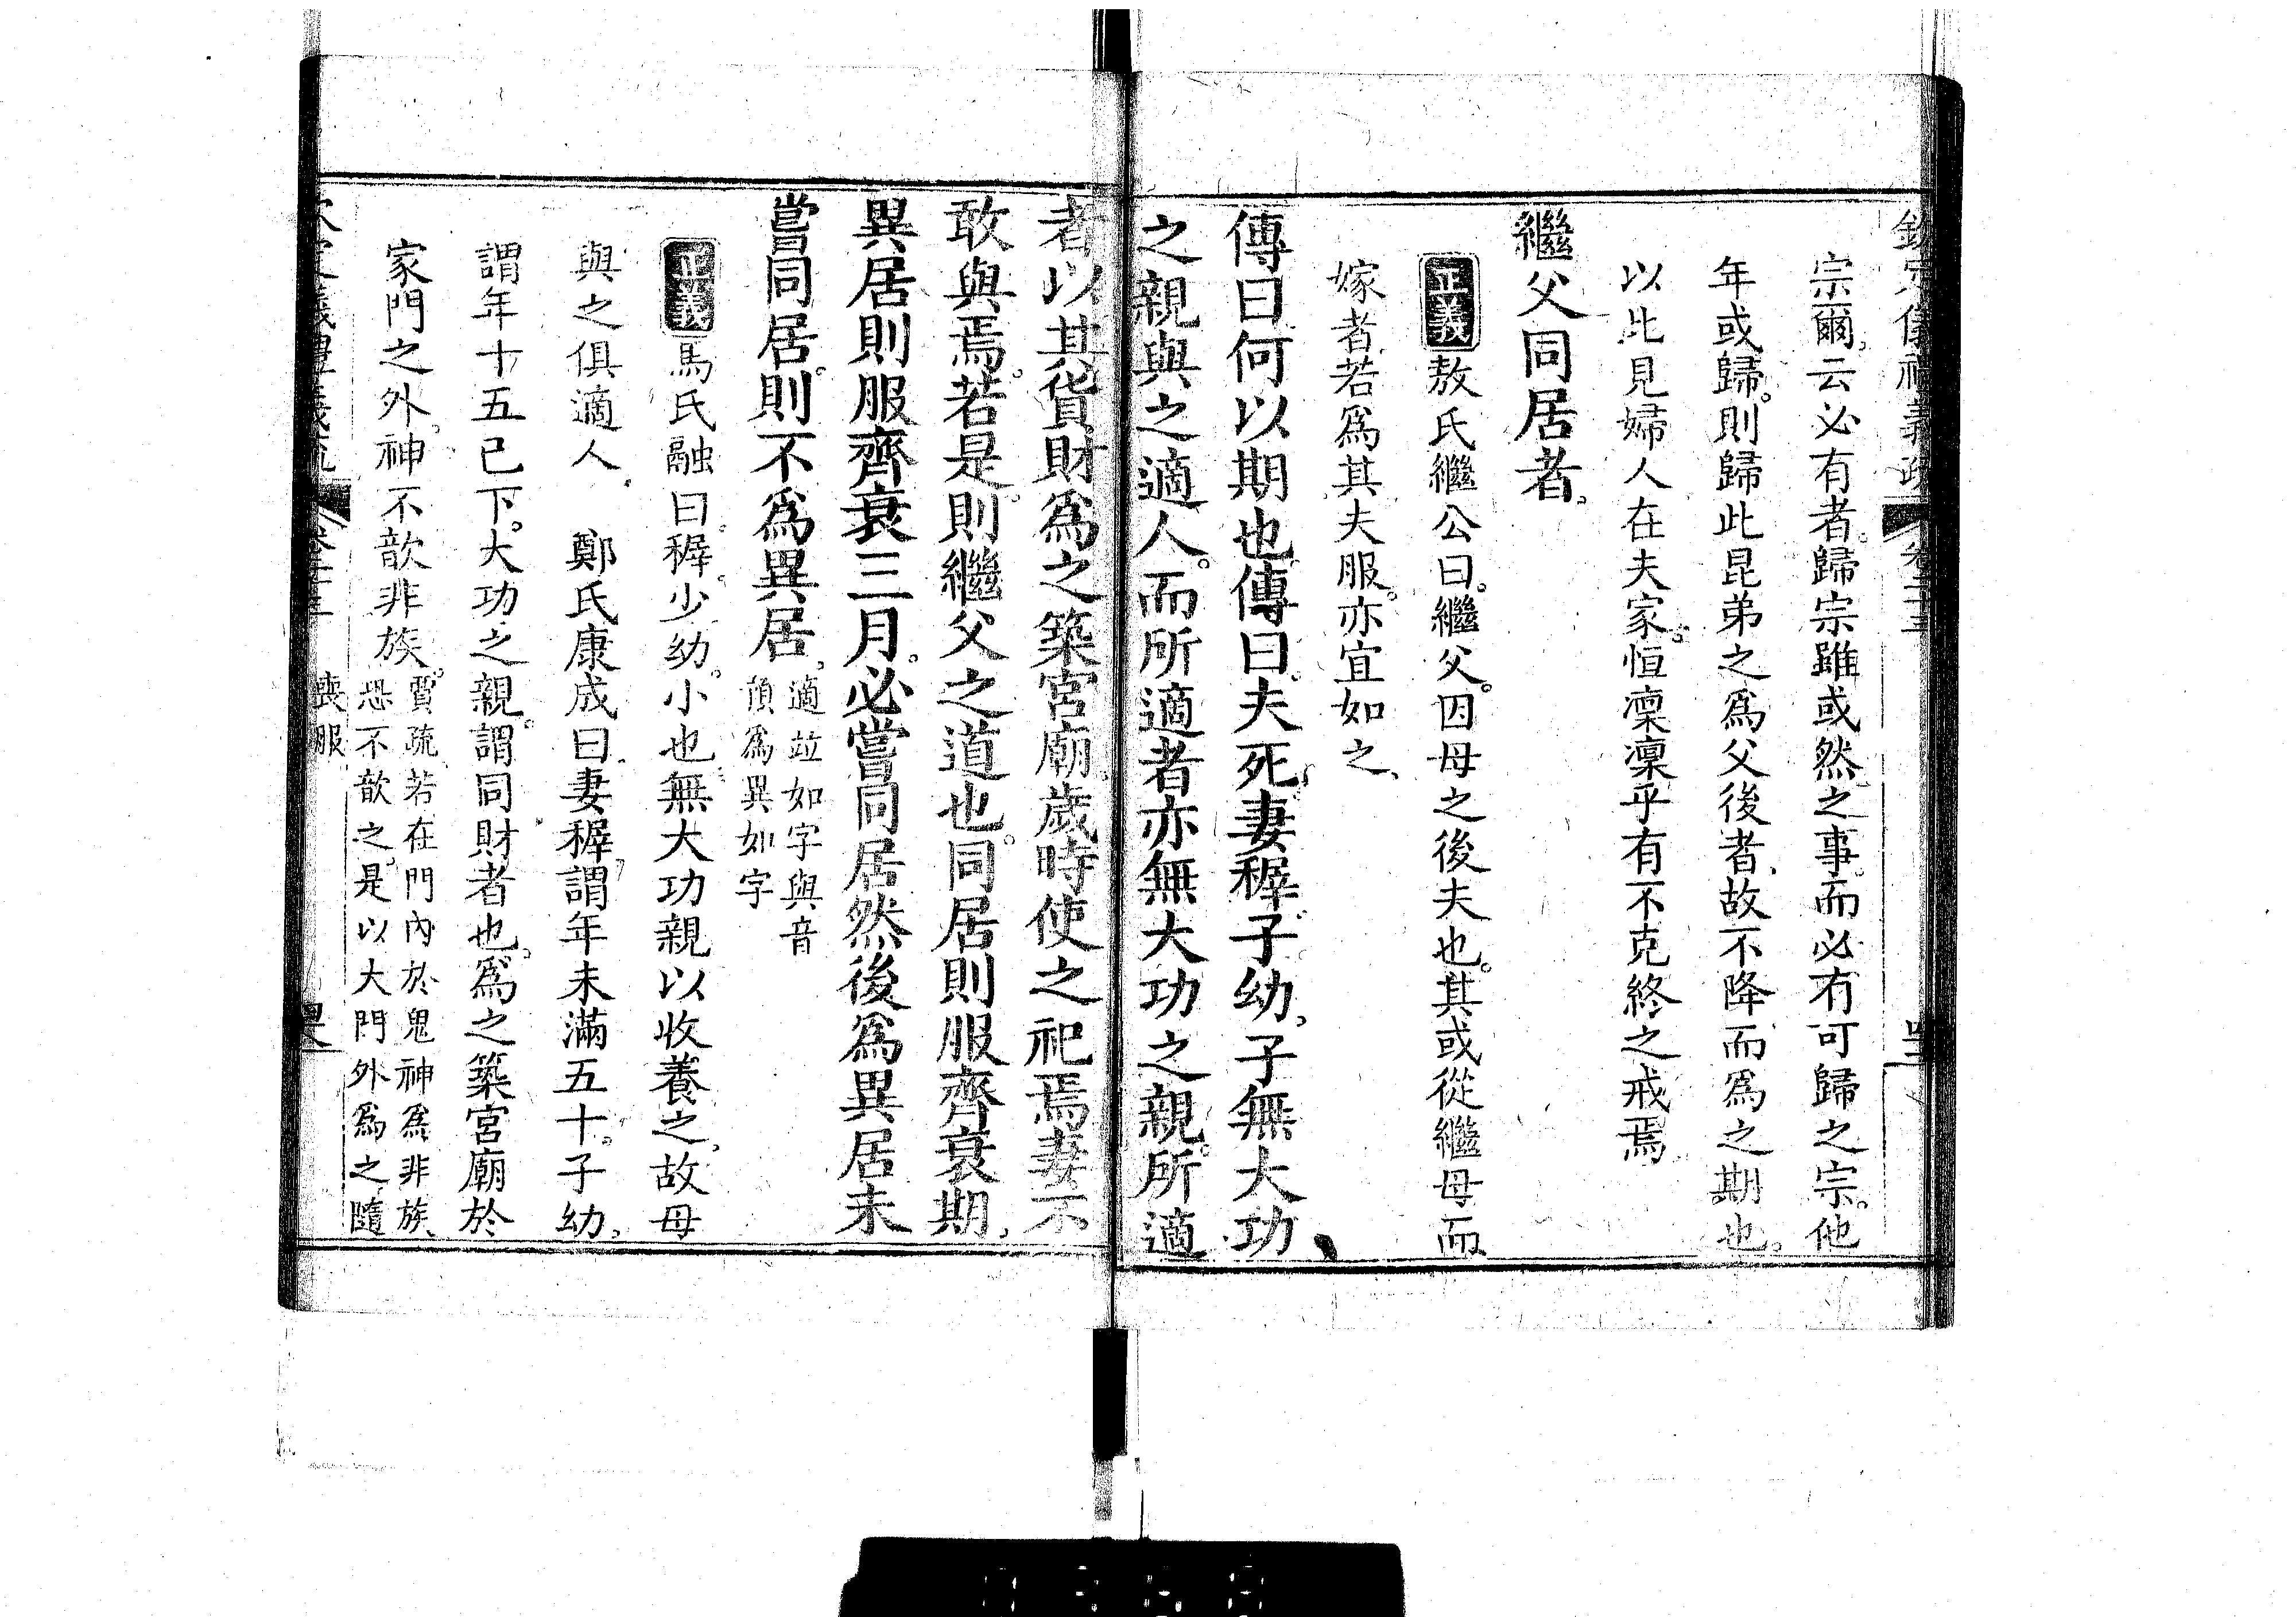 欽定儀禮義疏　卷二十三
宗爾。云必有者。歸宗雖或然之事。而必有可歸之宗。他
年或歸。則歸此昆弟之爲父後者、故不降而爲之期也。
以此見婦人在夫家。恒凜凜乎有不克終之戒焉
繼父同居者。
正義 敖氏繼公曰。繼父。因母之後夫也。其或從繼母而
嫁者。若爲其夫服。亦宜如之、
傳曰何以期也。傳曰。夫死。妻穉。子幼。子無大功
之親。與之適人。而所適者亦無大功之親。所適
者以其貨財爲之築宮廟。歲時使之祀焉。妻不
敢與焉。若是。則繼父之道也。同居則服齊衰期。
異居則服齊衰三月。必嘗同居。然後爲異居。未
嘗同居。則不爲異居。適竝如字與音
預爲異如字
正義 馬氏融曰。穉。少。幼。小也。無大功親以收養之。故母
與之俱適人。　鄭氏康成曰。妻穉。謂年未滿五十。子幼。
謂年十五已下。大功之親。謂同財者也。爲之築宮廟於
家門之外。神不歆非族。賈疏若在門內於鬼神爲非族、
恐不歆之。是以大門外爲之隨
喪服